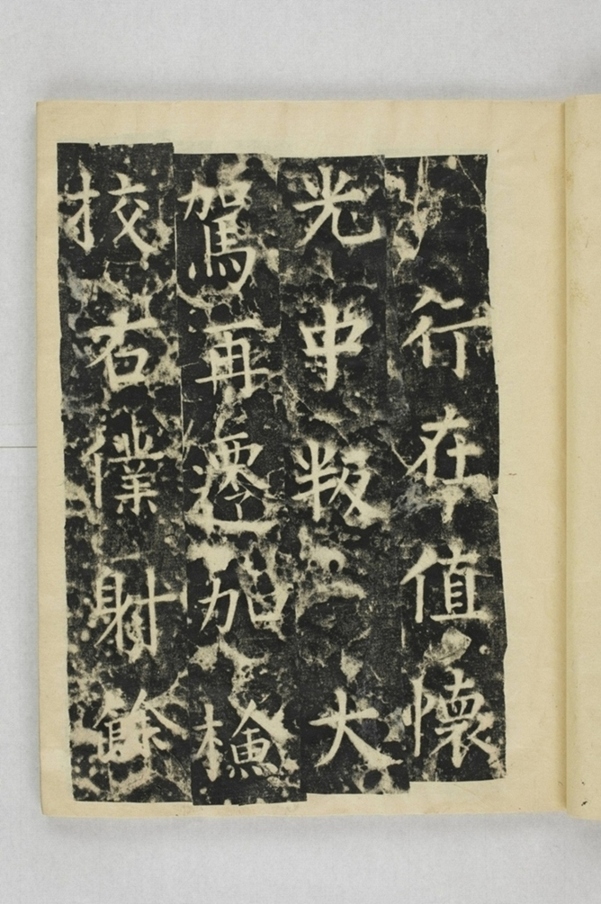 行在值懷
光中叛大
駕再遷加檢
挍右僕射餘